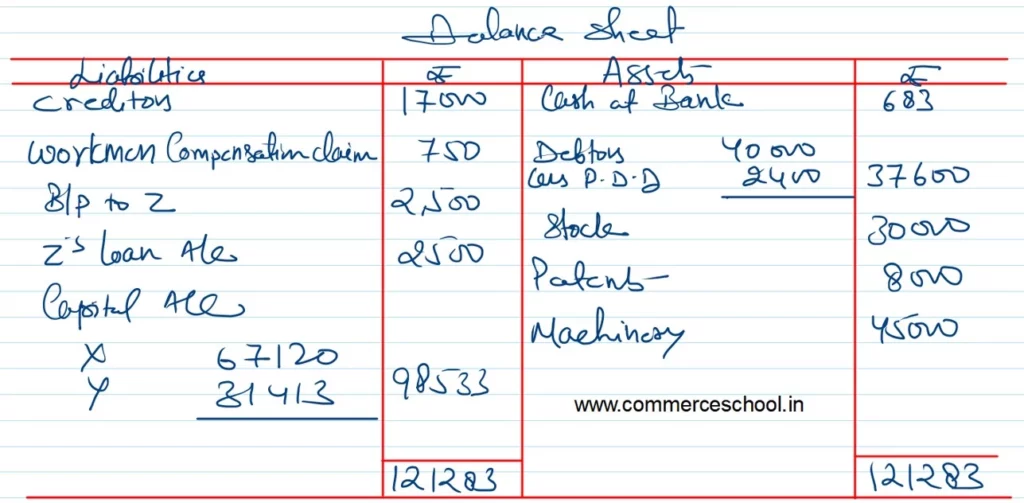 Balance Sheet
Liabilities ₹ Assets ₹
Creditors 17000 Cash at Bank 683
Workmen Compensation claim 750 Debtors 40000
less P.D.D 2400 37600
B/P to Z 2,500
Stock 30000
Z's loan A/c 2500
Patents 8000
Capital A/c
Machinery 45000
X 67120
Y 31413 98533
www.commerceschool.in
121283 121283